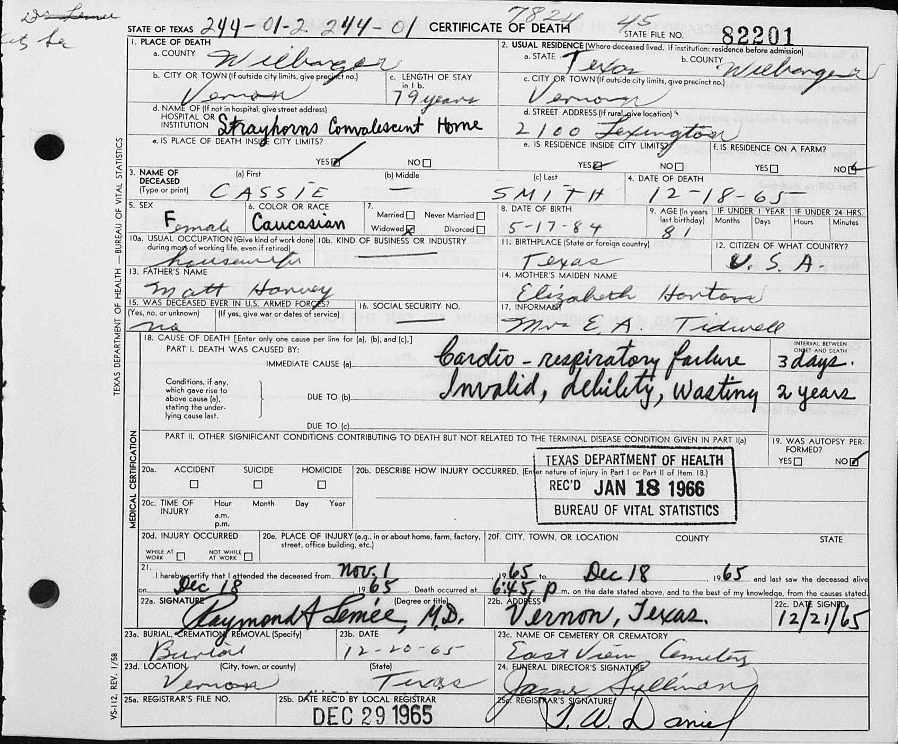 STATE OF TEXAS 244-01-2 244-01 CERTIFICATE OF DEATH 7824 45 STATE FILE NO. 82201
1. PLACE OF DEATH
a. COUNTY Wilbarger
2. USUAL RESIDENCE (Where deceased lived. If institution: residence before admission)
a. STATE Texas b. COUNTY Wilbarger
b. CITY OR TOWN (If outside city limits, give precinct no.) Vernon
c. LENGTH OF STAY in 1 b. 79 years
c. CITY OR TOWN (If outside city limits, give precinct no.) Vernon
d. NAME OF (If not in hospital, give street address) HOSPITAL OR INSTITUTION Strayhorns Convalescent Home
d. STREET ADDRESS (If rural, give location) 2100 Lexington
e. IS PLACE OF DEATH INSIDE CITY LIMITS? YES NO
e. IS RESIDENCE INSIDE CITY LIMITS? YES NO
f. IS RESIDENCE ON A FARM? YES NO
3. NAME OF DECEASED (Type or print) (a) First CASSIE (b) Middle — (c) Last SMITH
4. DATE OF DEATH 12-18-65
5. SEX Female
6. COLOR OR RACE Caucasian
7. Married Never Married Widowed Divorced
8. DATE OF BIRTH 5-17-84
9. AGE (In years last birthday) 81
IF UNDER 1 YEAR Months Days
IF UNDER 24 HRS. Hours Minutes
10a. USUAL OCCUPATION (Give kind of work done during most of working life, even if retired) housewife
10b. KIND OF BUSINESS OR INDUSTRY —
11. BIRTHPLACE (State or foreign country) Texas
12. CITIZEN OF WHAT COUNTRY? U.S.A.
13. FATHER'S NAME Matt Harvey
14. MOTHER'S MAIDEN NAME Elizabeth
15. WAS DECEASED EVER IN U.S. ARMED FORCES? (Yes, no, or unknown) (If yes, give war or dates of service) no
16. SOCIAL SECURITY NO. —
17. INFORMANT Mrs E. A. Tidwell
18. CAUSE OF DEATH [Enter only one cause per line for (a), (b), and (c).]
PART I. DEATH WAS CAUSED BY:
IMMEDIATE CAUSE (a) Cardio-respiratory failure
INTERVAL BETWEEN ONSET AND DEATH 3 days.
Conditions, if any, which gave rise to above cause (a), stating the underlying cause last.
DUE TO (b) Invalid, debility, wasting 2 years
DUE TO (c)
PART II. OTHER SIGNIFICANT CONDITIONS CONTRIBUTING TO DEATH BUT NOT RELATED TO THE TERMINAL DISEASE CONDITION GIVEN IN PART I(a)
19. WAS AUTOPSY PERFORMED? YES NO
20a. ACCIDENT SUICIDE HOMICIDE
20b. DESCRIBE HOW INJURY OCCURRED. (Enter nature of injury in Part I or Part II of Item 18.)
TEXAS DEPARTMENT OF HEALTH
REC'D JAN 18 1966
BUREAU OF VITAL STATISTICS
20c. TIME OF INJURY Hour Month Day Year
a.m.
p.m.
20d. INJURY OCCURRED WHILE AT WORK NOT WHILE AT WORK
20e. PLACE OF INJURY (e.g., in or about home, farm, factory, street, office building, etc.)
20F. CITY, TOWN, OR LOCATION COUNTY STATE
21. I hereby certify that I attended the deceased from Nov. 1 1965 to Dec 18, 1965 and last saw the deceased alive
on Dec 18 1965 Death occurred at 6:45 p m. on the date stated above, and to the best of my knowledge, from the causes stated.
22a. SIGNATURE (Degree or title) Raymond A Lemée, M.D.
22b. ADDRESS Vernon, Texas.
22c. DATE SIGNED 12/21/65
23a. BURIAL, CREMATION, REMOVAL (Specify) Burial
23b. DATE 12-20-65
23c. NAME OF CEMETERY OR CREMATORY East View Cemetery
23d. LOCATION (City, town, or county) (State) Vernon Texas
24. FUNERAL DIRECTOR'S SIGNATURE James Sullivan
25a. REGISTRAR'S FILE NO.
25b. DATE REC'D BY LOCAL REGISTRAR DEC 29 1965
25c. REGISTRAR'S SIGNATURE W. Daniel
TEXAS DEPARTMENT OF HEALTH — BUREAU OF VITAL STATISTICS
MEDICAL CERTIFICATION
VS-112, REV. 1/58